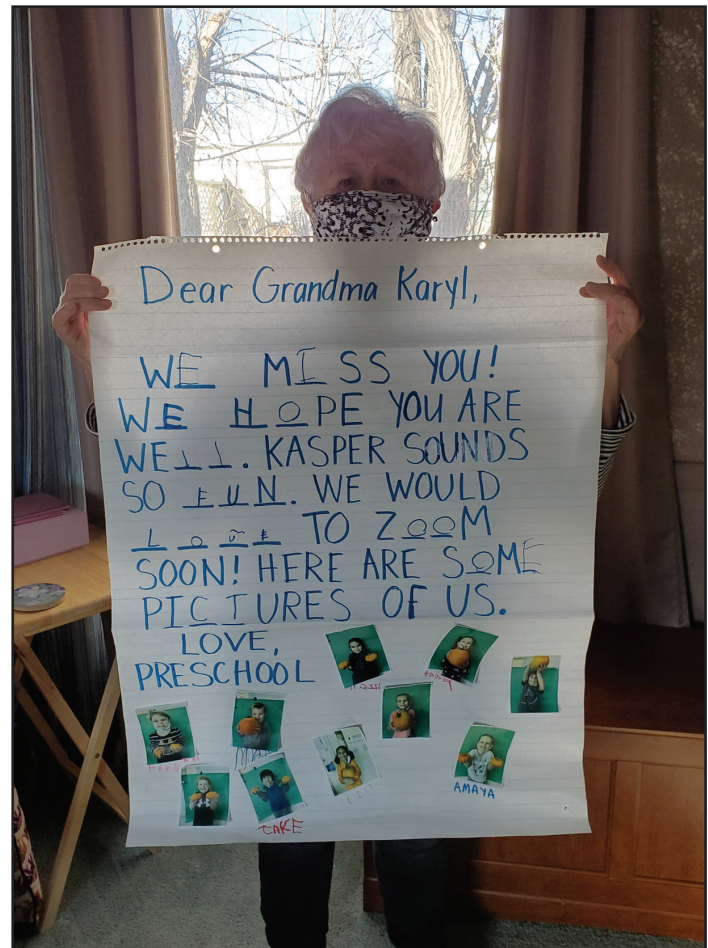 Dear Grandma Karyl,
WE MISS YOU!
WE HOPE YOU ARE
WELL. KASPER SOUNDS
SO FUN. WE WOULD
LOVE TO ZOOM
SOON! HERE ARE SOME
PICTURES OF US.
LOVE,
PRESCHOOL
JAKE
AMAYA